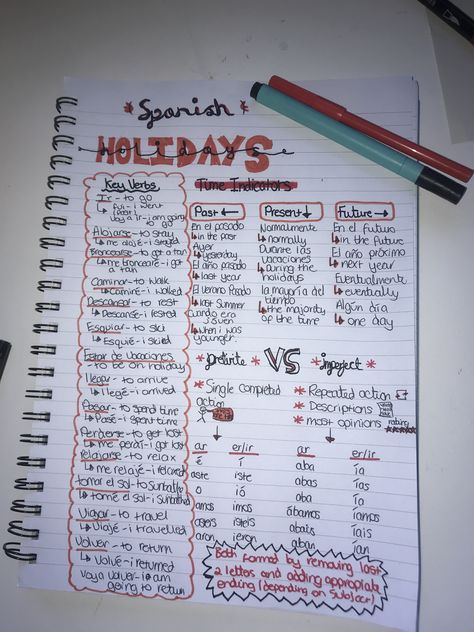 Spanish
HOLIDAYS
holidays
Key Verbs
Ir - to go
fui - i went
(past)
Voy a ir - i am going
to go
Alojarse - to stay
me alojé - i stayed
Broncearse - to get a tan
me broncearé - i got
a tan
Caminar - to walk
Caminé - i walked
Descansar - to rest
Descansé - i rested
Esquiar - to ski
Esquié - i skied
Estar de vacaciones
- to be on holiday
llegar - to arrive
llegué - i arrived
Pasar - to spend time
Pasé - i spent time
Perderse - to get lost
me perdí - i got lost
relajarse - to relax
me relajé - i relaxed
tomar el sol - to sunbathe
tomé el sol - i sunbathed
Viajar - to travel
Viajé - i travelled
Volver - to return
Volvé - i returned
Voy a volver - i am
going to return
Time Indicators
Past ←
En el pasado
in the past
Ayer
Yesterday
El año pasado
last year
El verano Pasado
last Summer
Cuando era
joven
when i was
younger
Present ↓
Normalmente
normally
Durante las
vacaciones
During the
holidays
la mayoría del
tiempo
the majority
of the time
Future →
En el futuro
in the future
El año próximo
next year
Eventualmente
eventually
Algún día
one day
* preterite * VS * imperfect *
* Single completed
action
* Repeated action
* Descriptions
* most opinions
rating
ar er/ir
é í
aste iste
ó ió
amos imos
asteis isteis
aron ieron
ar er/ir
aba ía
abas ías
aba ía
ábamos íamos
abais íais
aban ían
Both formed by removing last
2 letters and adding appropriate
ending (depending on subject)